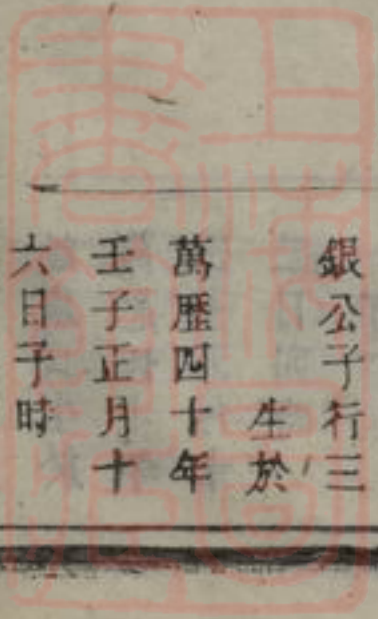 銀公子行三
生於
萬歷四十年
壬子正月十
六日子時